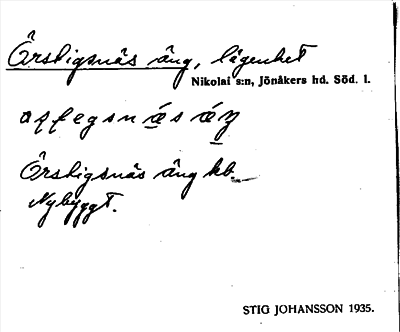 Örstigsnäs äng, lägenhet
Nikolai s:n, Jönåkers hd. Söd. l.
Örstigsnäs äng kb.
Nybyggt.
STIG JOHANSSON 1935.